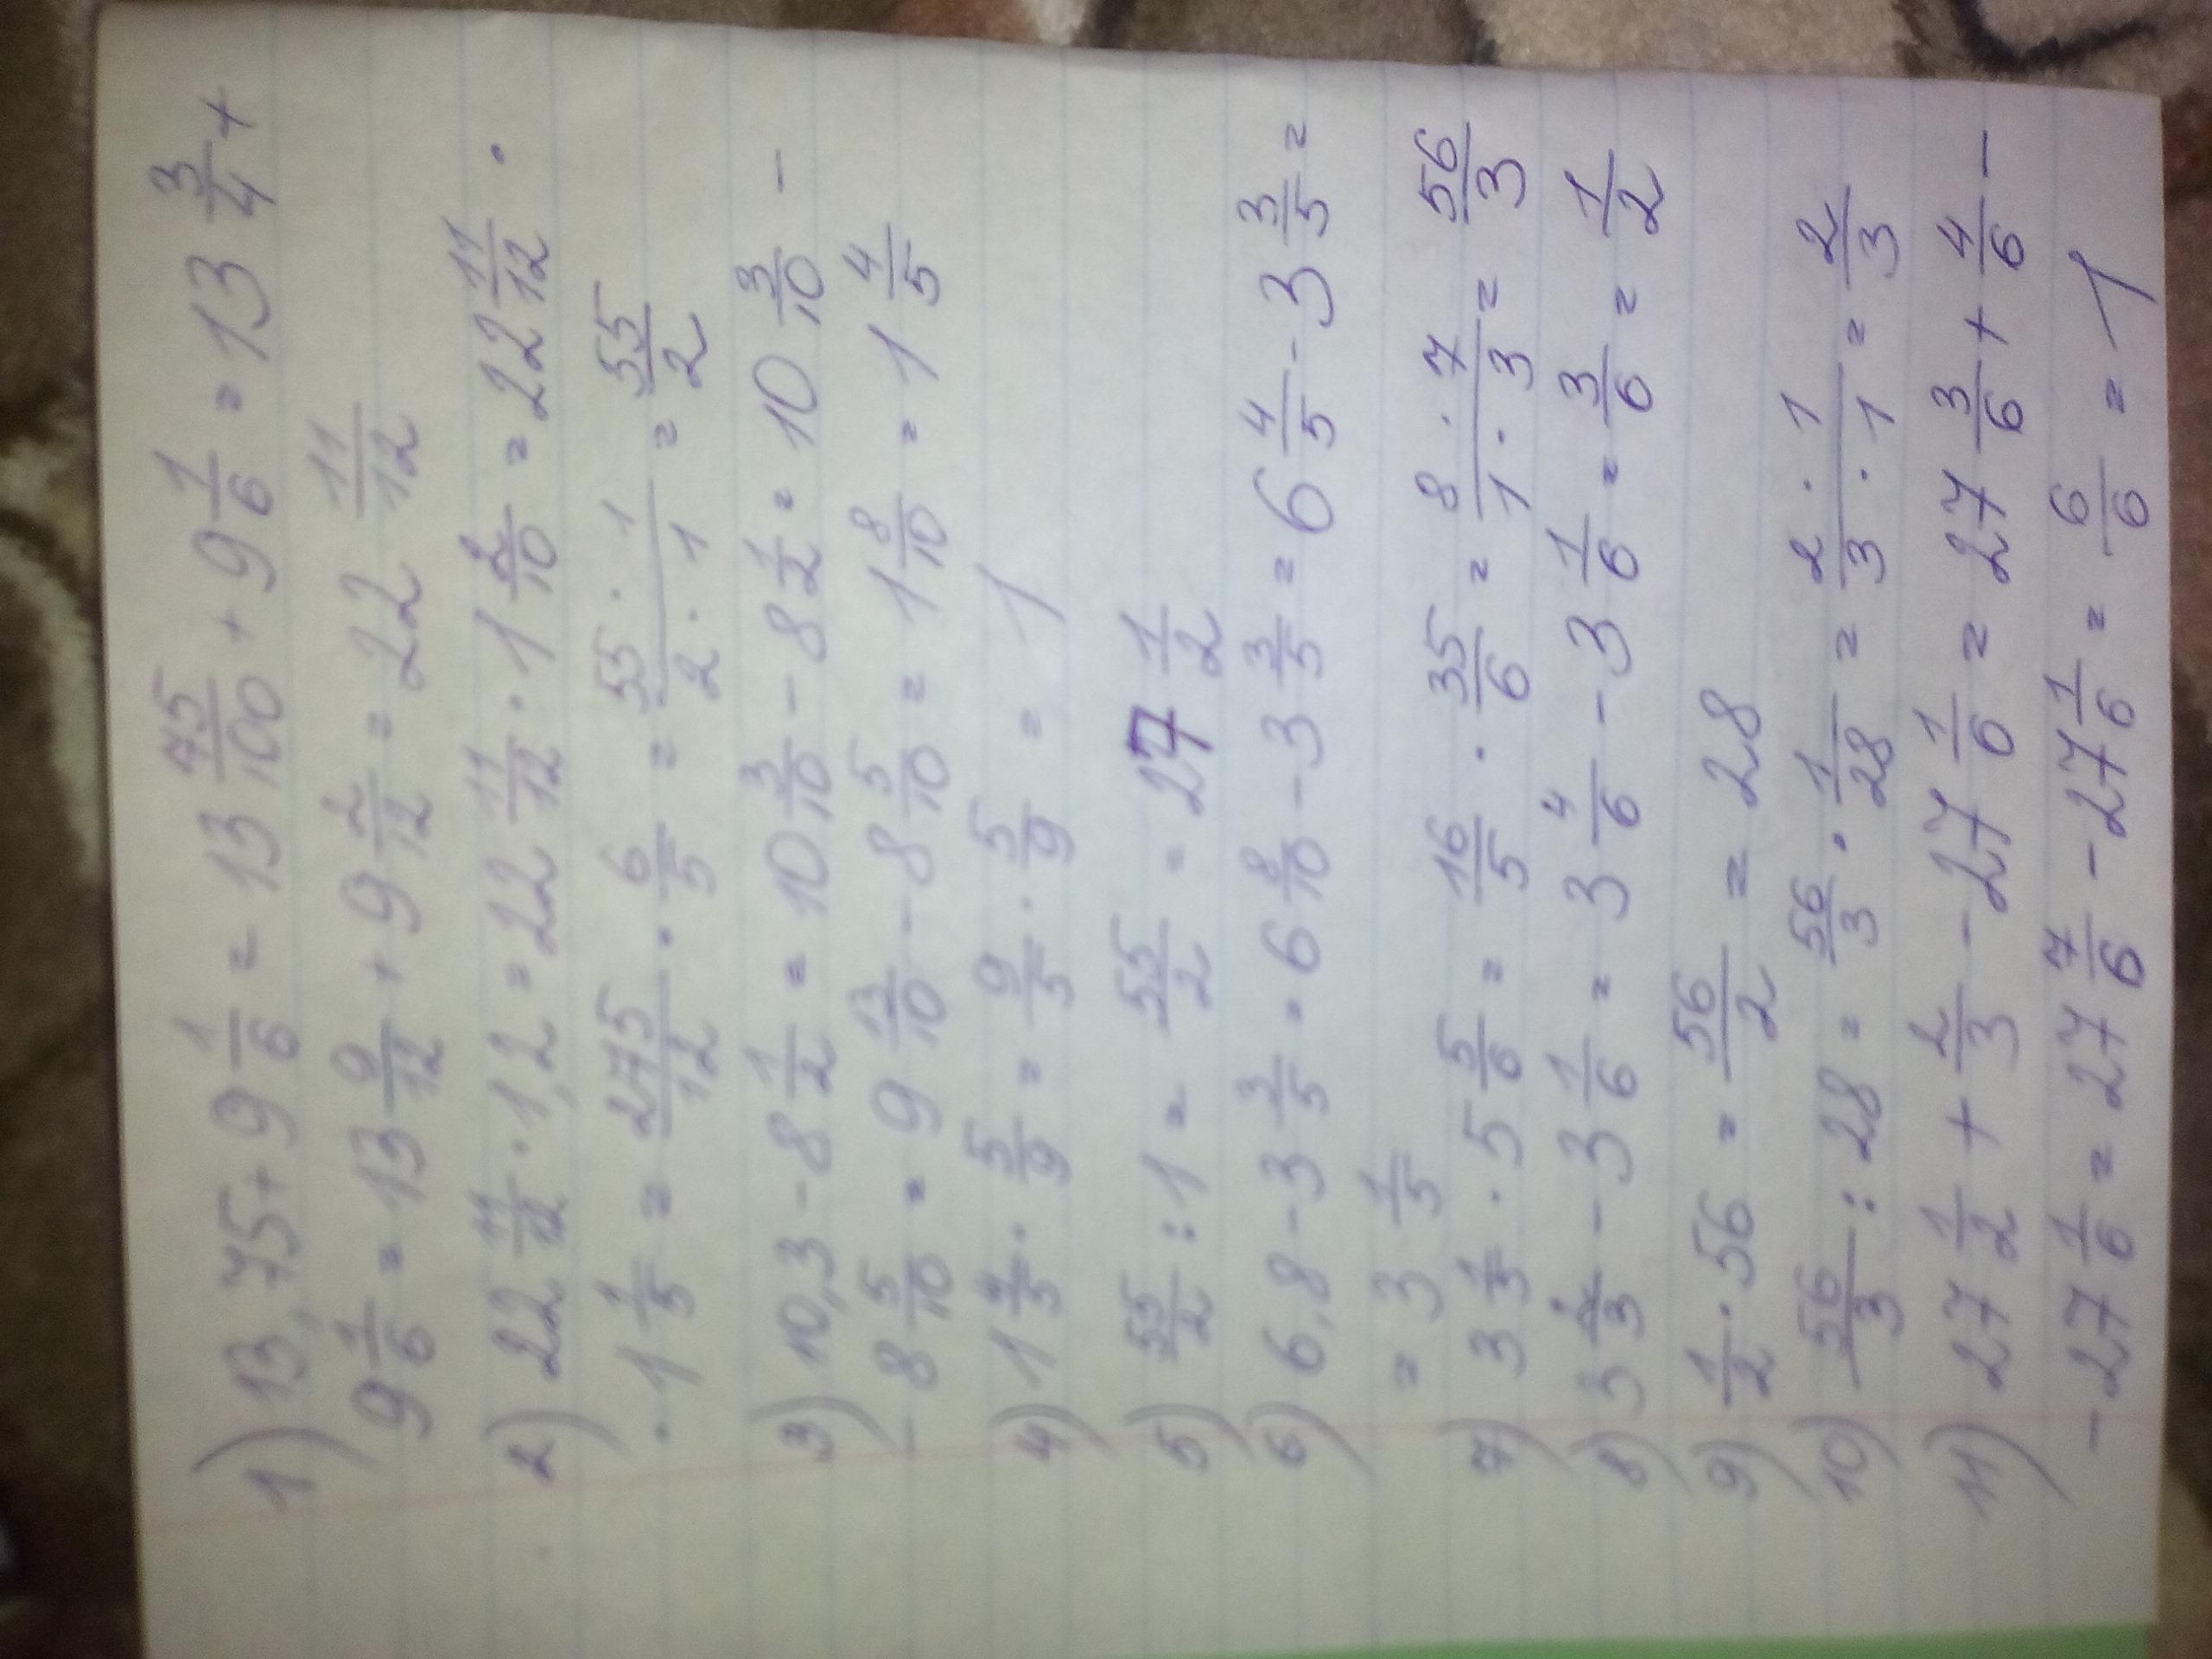 1) 13,75 + 9 1/6 = 13 75/100 + 9 1/6 = 13 3/4 +
9 1/6 = 13 9/12 + 9 2/12 = 22 11/12
2) 22 11/12 · 1,2 = 22 11/12 · 1 2/10 = 22 11/12 ·
· 1 1/5 = 275/12 · 6/5 = 55 · 1/2 · 1 = 55/2
3) 10,3 - 8 1/2 = 10 3/10 - 8 1/2 = 10 3/10 -
- 8 5/10 = 9 13/10 - 8 5/10 = 1 8/10 = 1 4/5
4) 1 4/5 · 5/9 = 9/5 · 5/9 = 1
5) 55/2 : 1 = 55/2 = 27 1/2
6) 6,8 - 3 3/5 = 6 8/10 - 3 3/5 = 6 4/5 - 3 3/5 =
= 3 1/5
7) 3 1/5 · 5 5/6 = 16/5 · 35/6 = 8 · 7/1 · 3 = 56/3
8) 3 2/3 - 3 1/6 = 3 4/6 - 3 1/6 = 3/6 = 1/2
9) 1/2 · 56 = 56/2 = 28
10) 56/3 : 28 = 56/3 · 1/28 = 2 · 1/3 · 1 = 2/3
11) 27 1/2 + 2/3 - 27 1/6 = 27 3/6 + 4/6 -
- 27 1/6 = 27 7/6 - 27 1/6 = 6/6 = 1